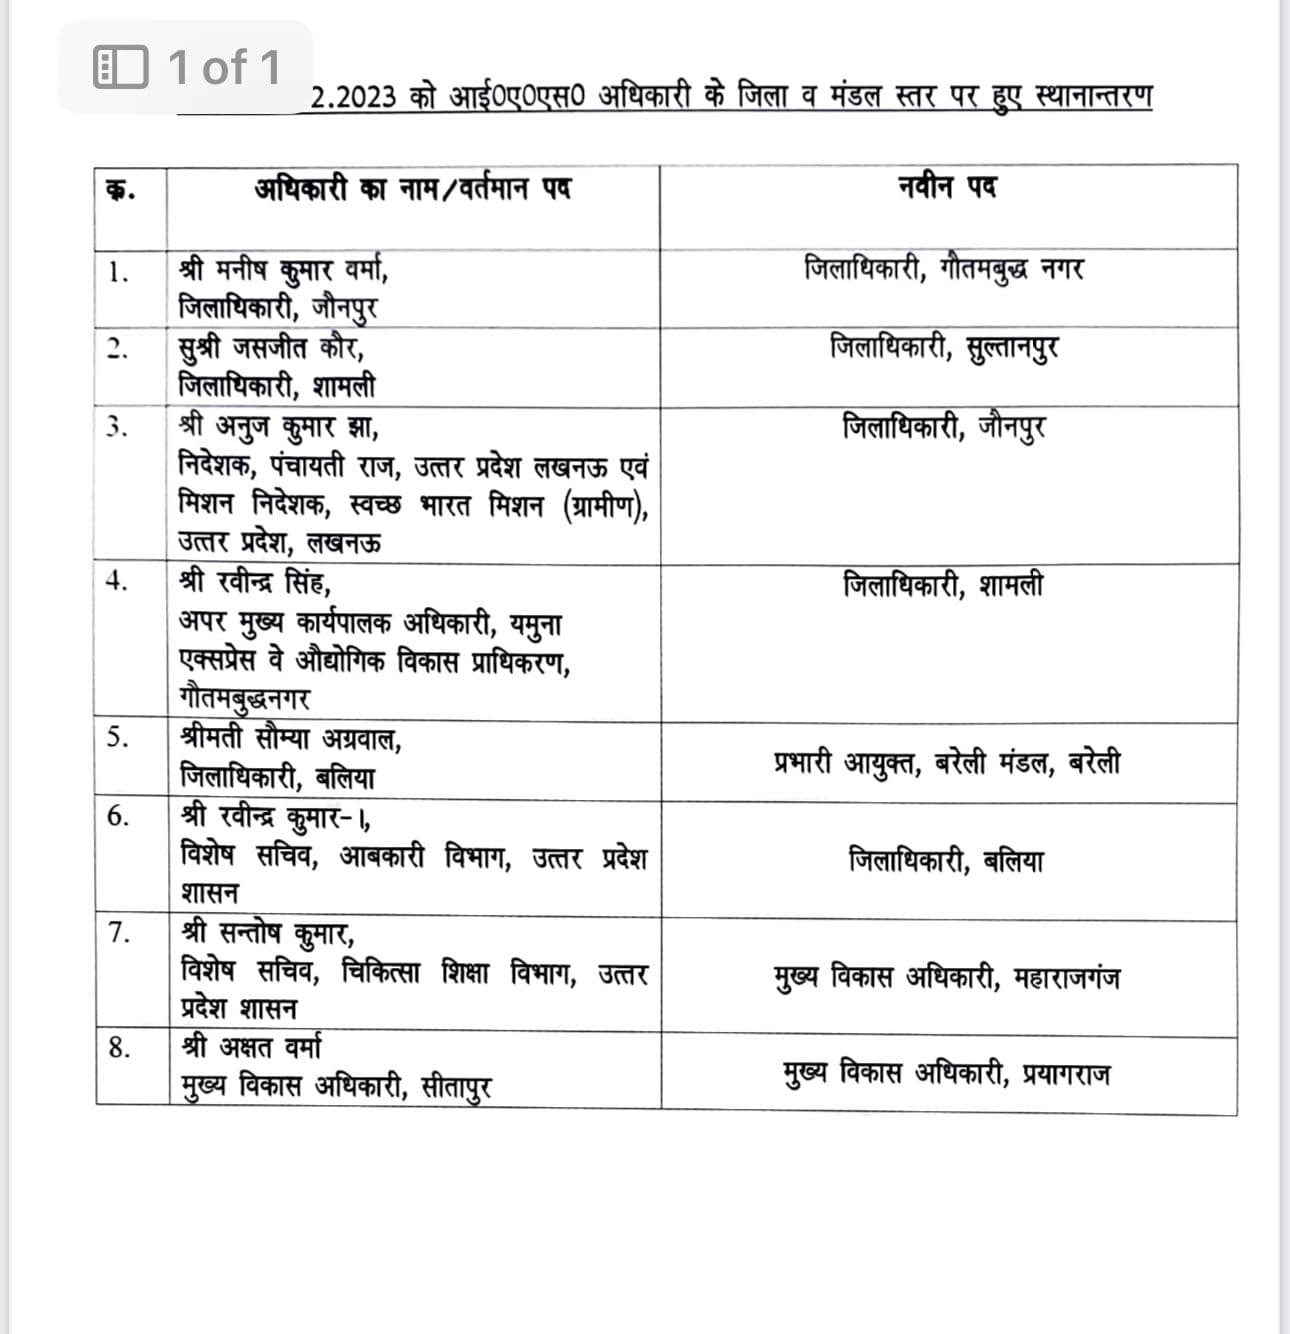 1 of 1
2.2023 को आई0ए0एस0 अधिकारी के जिला व मंडल स्तर पर हुए स्थानान्तरण
क्र. अधिकारी का नाम/वर्तमान पद नवीन पद
1. श्री मनीष कुमार वर्मा, जिलाधिकारी, गौतमबुद्ध नगर
जिलाधिकारी, जौनपुर
2. सुश्री जसजीत कौर, जिलाधिकारी, सुल्तानपुर
जिलाधिकारी, शामली
3. श्री अनुज कुमार झा, जिलाधिकारी, जौनपुर
निदेशक, पंचायती राज, उत्तर प्रदेश लखनऊ एवं
मिशन निदेशक, स्वच्छ भारत मिशन (ग्रामीण),
उत्तर प्रदेश, लखनऊ
4. श्री रवीन्द्र सिंह, जिलाधिकारी, शामली
अपर मुख्य कार्यपालक अधिकारी, यमुना
एक्सप्रेस वे औद्योगिक विकास प्राधिकरण,
गौतमबुद्धनगर
5. श्रीमती सौम्या अग्रवाल,
प्रभारी आयुक्त, बरेली मंडल, बरेली
जिलाधिकारी, बलिया
6. श्री रवीन्द्र कुमार-।,
विशेष सचिव, आबकारी विभाग, उत्तर प्रदेश जिलाधिकारी, बलिया
शासन
7. श्री सन्तोष कुमार,
विशेष सचिव, चिकित्सा शिक्षा विभाग, उत्तर मुख्य विकास अधिकारी, महाराजगंज
प्रदेश शासन
8. श्री अक्षत वर्मा
मुख्य विकास अधिकारी, प्रयागराज
मुख्य विकास अधिकारी, सीतापुर